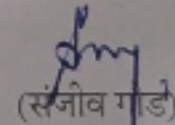 (संजीव गोडे)